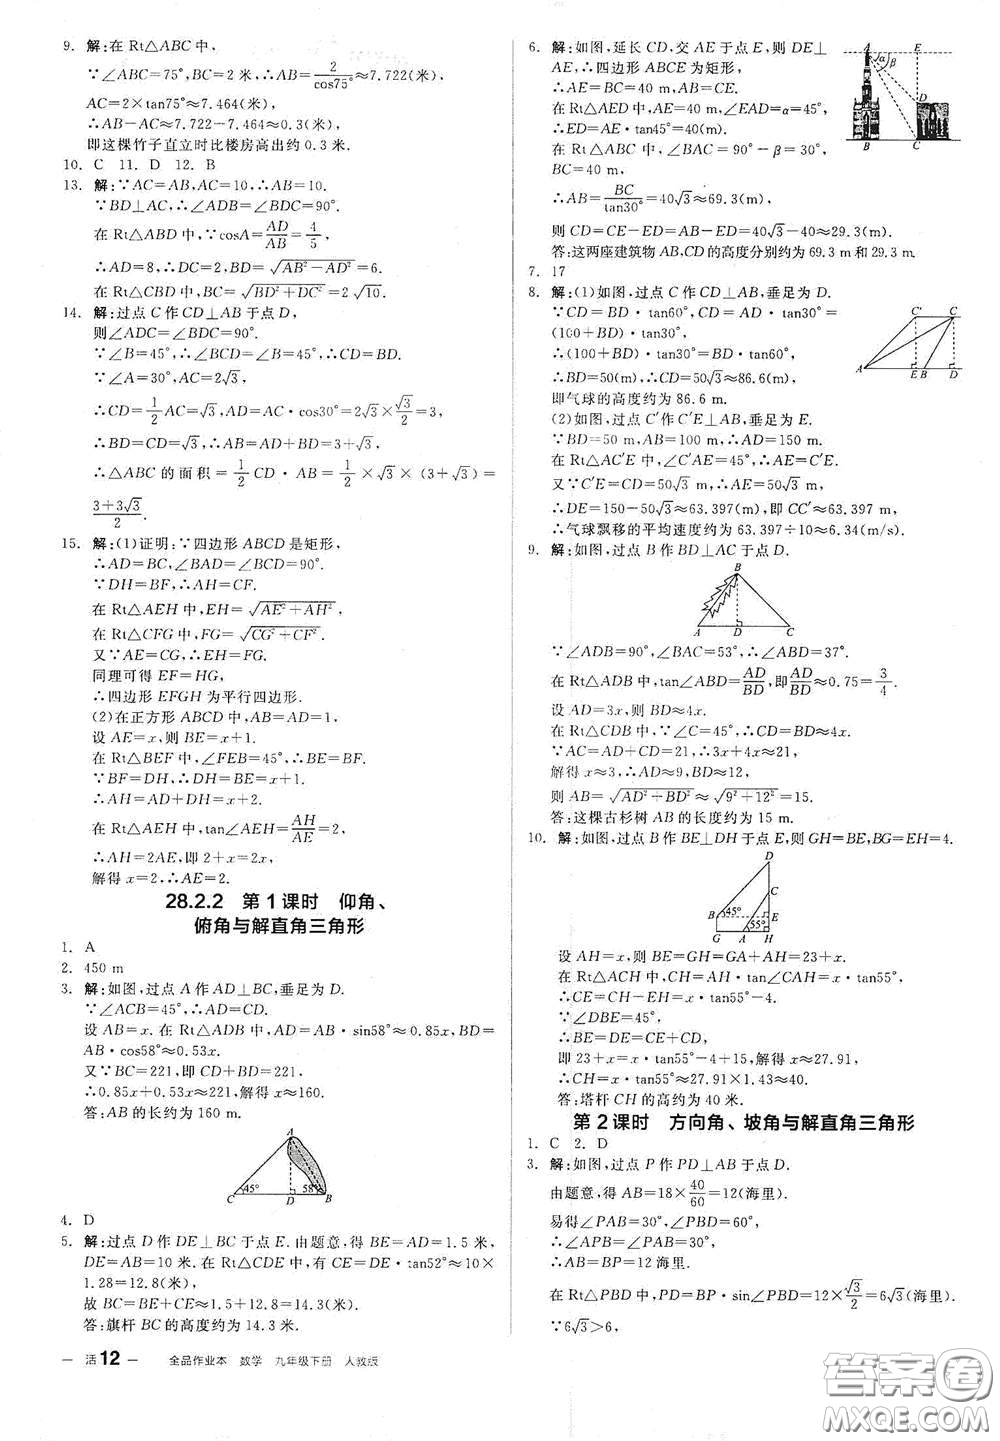 9. 解:在 Rt△ABC 中,
∵∠ABC=75°,BC=2 米,∴AB=2/cos75°≈7.722(米),
AC=2×tan75°≈7.464(米),
∴AB-AC≈7.722-7.464≈0.3(米),
即这棵竹子直立时比楼房高出约 0.3 米.
10. C 11. D 12. B
13. 解:∵AC=AB,AC=10,∴AB=10.
∵BD⊥AC,∴∠ADB=∠BDC=90°.
在 Rt△ABD 中,∵cosA=AD/AB=4/5,
∴AD=8,∴DC=2,BD=√(AB²-AD²)=6.
在 Rt△CBD 中,BC=√(BD²+DC²)=2√10.
14. 解:过点 C 作 CD⊥AB 于点 D,
则∠ADC=∠BDC=90°.
∵∠B=45°,∴∠BCD=∠B=45°,∴CD=BD.
∵∠A=30°,AC=2√3,
∴CD=1/2AC=√3,AD=AC·cos30°=2√3×√3/2=3,
∴BD=CD=√3,∴AB=AD+BD=3+√3,
∴△ABC 的面积=1/2CD·AB=1/2×√3×(3+√3)=
(3+3√3)/2.
15. 解:(1)证明:∵四边形 ABCD 是矩形,
∴AD=BC,∠BAD=∠BCD=90°.
∵DH=BF,∴AH=CF.
在 Rt△AEH 中,EH=√(AE²+AH²),
在 Rt△CFG 中,FG=√(CG²+CF²).
又∵AE=CG,∴EH=FG.
同理可得 EF=HG,
∴四边形 EFGH 为平行四边形.
(2)在正方形 ABCD 中,AB=AD=1,
设 AE=x,则 BE=x+1.
在 Rt△BEF 中,∠FEB=45°,∴BE=BF.
∵BF=DH,∴DH=BE=x+1.
∴AH=AD+DH=x+2.
在 Rt△AEH 中,tan∠AEH=AH/AE=2,
∴AH=2AE,即 2+x=2x,
解得 x=2,∴AE=2.
28.2.2 第 1 课时 仰角、
俯角与解直角三角形
1. A
2. 450 m
3. 解:如图,过点 A 作 AD⊥BC,垂足为 D.
∵∠ACB=45°,∴AD=CD.
设 AB=x. 在 Rt△ADB 中,AD=AB·sin58°≈0.85x,BD=
AB·cos58°≈0.53x.
又∵BC=221,即 CD+BD=221,
∴0.85x+0.53x≈221,解得 x≈160.
答:AB 的长约为 160 m.
A
45° 58°
C D B
4. D
5. 解:过点 D 作 DE⊥BC 于点 E. 由题意,得 BE=AD=1.5 米,
DE=AB=10 米. 在 Rt△CDE 中,有 CE=DE·tan52°≈10×
1.28=12.8(米),
故 BC=BE+CE≈1.5+12.8=14.3(米).
答:旗杆 BC 的高度约为 14.3 米.
活 12 全品作业本 数学 九年级下册 人教版
6. 解:如图,延长 CD,交 AE 于点 E,则 DE⊥
AE,∴四边形 ABCE 为矩形,
∴AE=BC=40 m,AB=CE.
在 Rt△AED 中,AE=40 m,∠EAD=α=45°,
∴ED=AE·tan45°=40(m).
在 Rt△ABC 中,∠BAC=90°-β=30°,
BC=40 m,
∴AB=BC/tan30°=40√3≈69.3(m),
则 CD=CE-ED=AB-ED=40√3-40≈29.3(m).
答:这两座建筑物 AB,CD 的高度分别约为 69.3 m 和 29.3 m.
A E
α β
D
B C
7. 17
8. 解:(1)如图,过点 C 作 CD⊥AB,垂足为 D.
∵CD=BD·tan60°,CD=AD·tan30°=
(100+BD)·tan30°,
∴(100+BD)·tan30°=BD·tan60°,
∴BD=50(m),∴CD=50√3≈86.6(m),
即气球的高度约为 86.6 m.
(2)如图,过点 C′作 C′E⊥AB,垂足为 E.
∵BD=50 m,AB=100 m,∴AD=150 m.
在 Rt△AC′E 中,∠C′AE=45°,∴AE=C′E.
又∵C′E=CD=50√3 m,∴AE=50√3 m,
∴DE=150-50√3≈63.397(m),即 CC′≈63.397 m,
∴气球飘移的平均速度约为 63.397÷10≈6.34(m/s).
C′ C
A E B D
9. 解:如图,过点 B 作 BD⊥AC 于点 D.
B
A D C
∵∠ADB=90°,∠BAC=53°,∴∠ABD=37°.
在 Rt△ADB 中,tan∠ABD=AD/BD,即AD/BD≈0.75=3/4.
设 AD=3x,则 BD≈4x.
在 Rt△CDB 中,∵∠C=45°,∴CD=BD≈4x.
∵AC=AD+CD=21,∴3x+4x≈21,
解得 x≈3,∴AD≈9,BD≈12,
则 AB=√(AD²+BD²)≈√(9²+12²)=15.
答:这棵古杉树 AB 的长度约为 15 m.
10. 解:如图,过点 B 作 BE⊥DH 于点 E,则 GH=BE,BG=EH=4.
D
C
B 45° E
55°
G A H
设 AH=x,则 BE=GH=GA+AH=23+x.
在 Rt△ACH 中,CH=AH·tan∠CAH=x·tan55°,
∴CE=CH-EH=x·tan55°-4.
∵∠DBE=45°,
∴BE=DE=CE+CD,
即 23+x=x·tan55°-4+15,解得 x≈27.91,
∴CH=x·tan55°≈27.91×1.43≈40.
答:塔杆 CH 的高约为 40 米.
第 2 课时 方向角、坡角与解直角三角形
1. C 2. D
3. 解:如图,过点 P 作 PD⊥AB 于点 D.
由题意,得 AB=18×40/60=12(海里).
易得∠PAB=30°,∠PBD=60°,
∴∠APB=30°=∠PAB,
∴AB=BP=12 海里.
在 Rt△PBD 中,PD=BP·sin∠PBD=12×√3/2=6√3(海里).
∵6√3>6,
答案圈
MXQE.COM